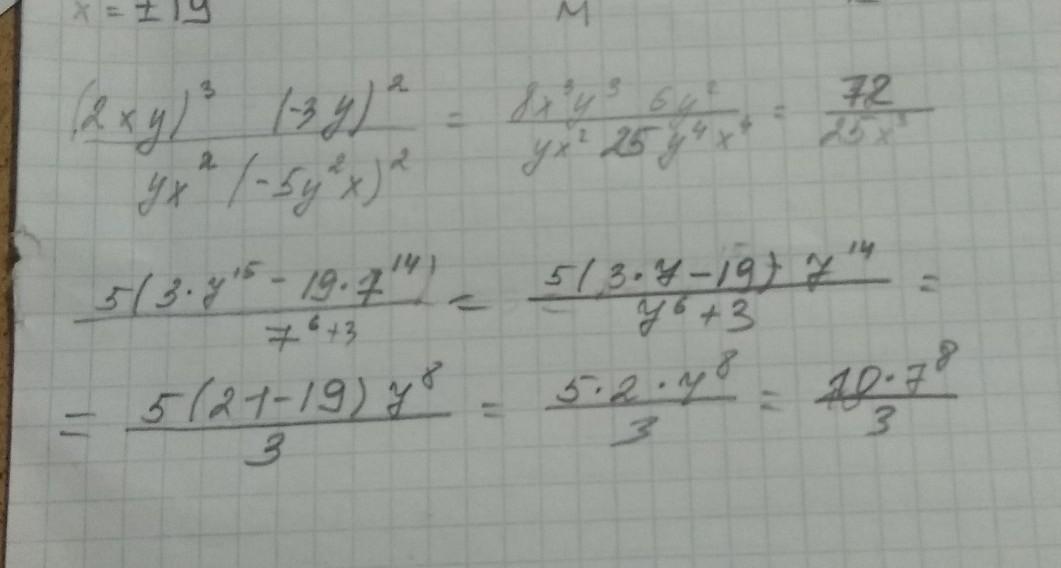 x = ±19 M
(2xy)³ (-3y)² / yx² (-5y²x)² = 8x³y³ 6y² / yx² 25y⁴x⁴ = 72 / 25x³
5(3·7¹⁵ - 19·7¹⁴) / 7⁶+3 = 5(3·7-19) 7¹⁴ / 7⁶+3 =
= 5(21-19) 7⁸ / 3 = 5·2·7⁸ / 3 = 10·7⁸ / 3